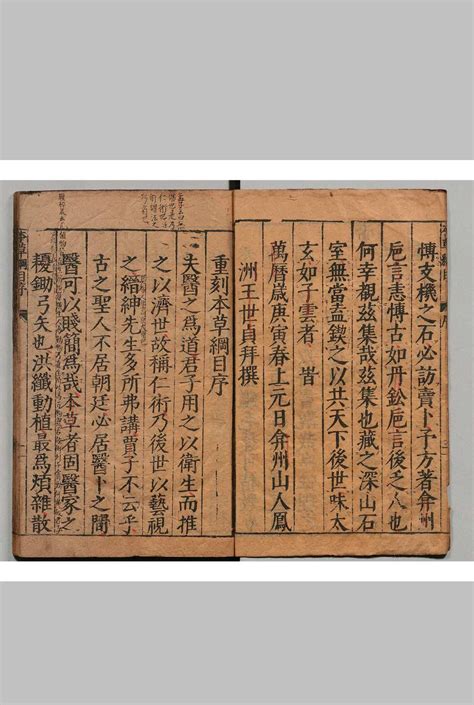 慱支機之石必訪賣卜予方著弇州
巵言恚愽古如丹鈆巵言後乏人也
何幸覩兹集哉兹集也藏之深山石
室無當盍鍥之以共天下後世味太
玄如子雲者
萬曆歳庚寅春上元日弇州山人鳳
洲王世貞拜撰
重刻本草綱目序
夫醫之爲道君子用之以衛生而推
之以濟世故稱仁術乃後世以藝視
之縉紳先生多所弗講賈子不云乎
古之聖人不居朝廷必居醫卜之間
醫可以賤簡爲哉本草者固醫家之
耰鋤弓矢也洪纖動植最爲煩雜散
本草綱目序